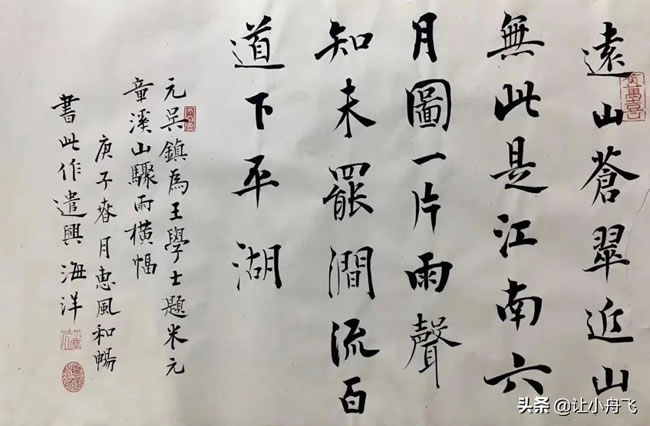 遠山蒼翠近山
無此是江南六
月圖一片雨聲
知未罷澗流百
道下平湖
元吳鎮為王學士題米元
章溪山驟雨橫幅
庚子春月惠風和暢
書此作遣興海洋
头条 @让小舟飞